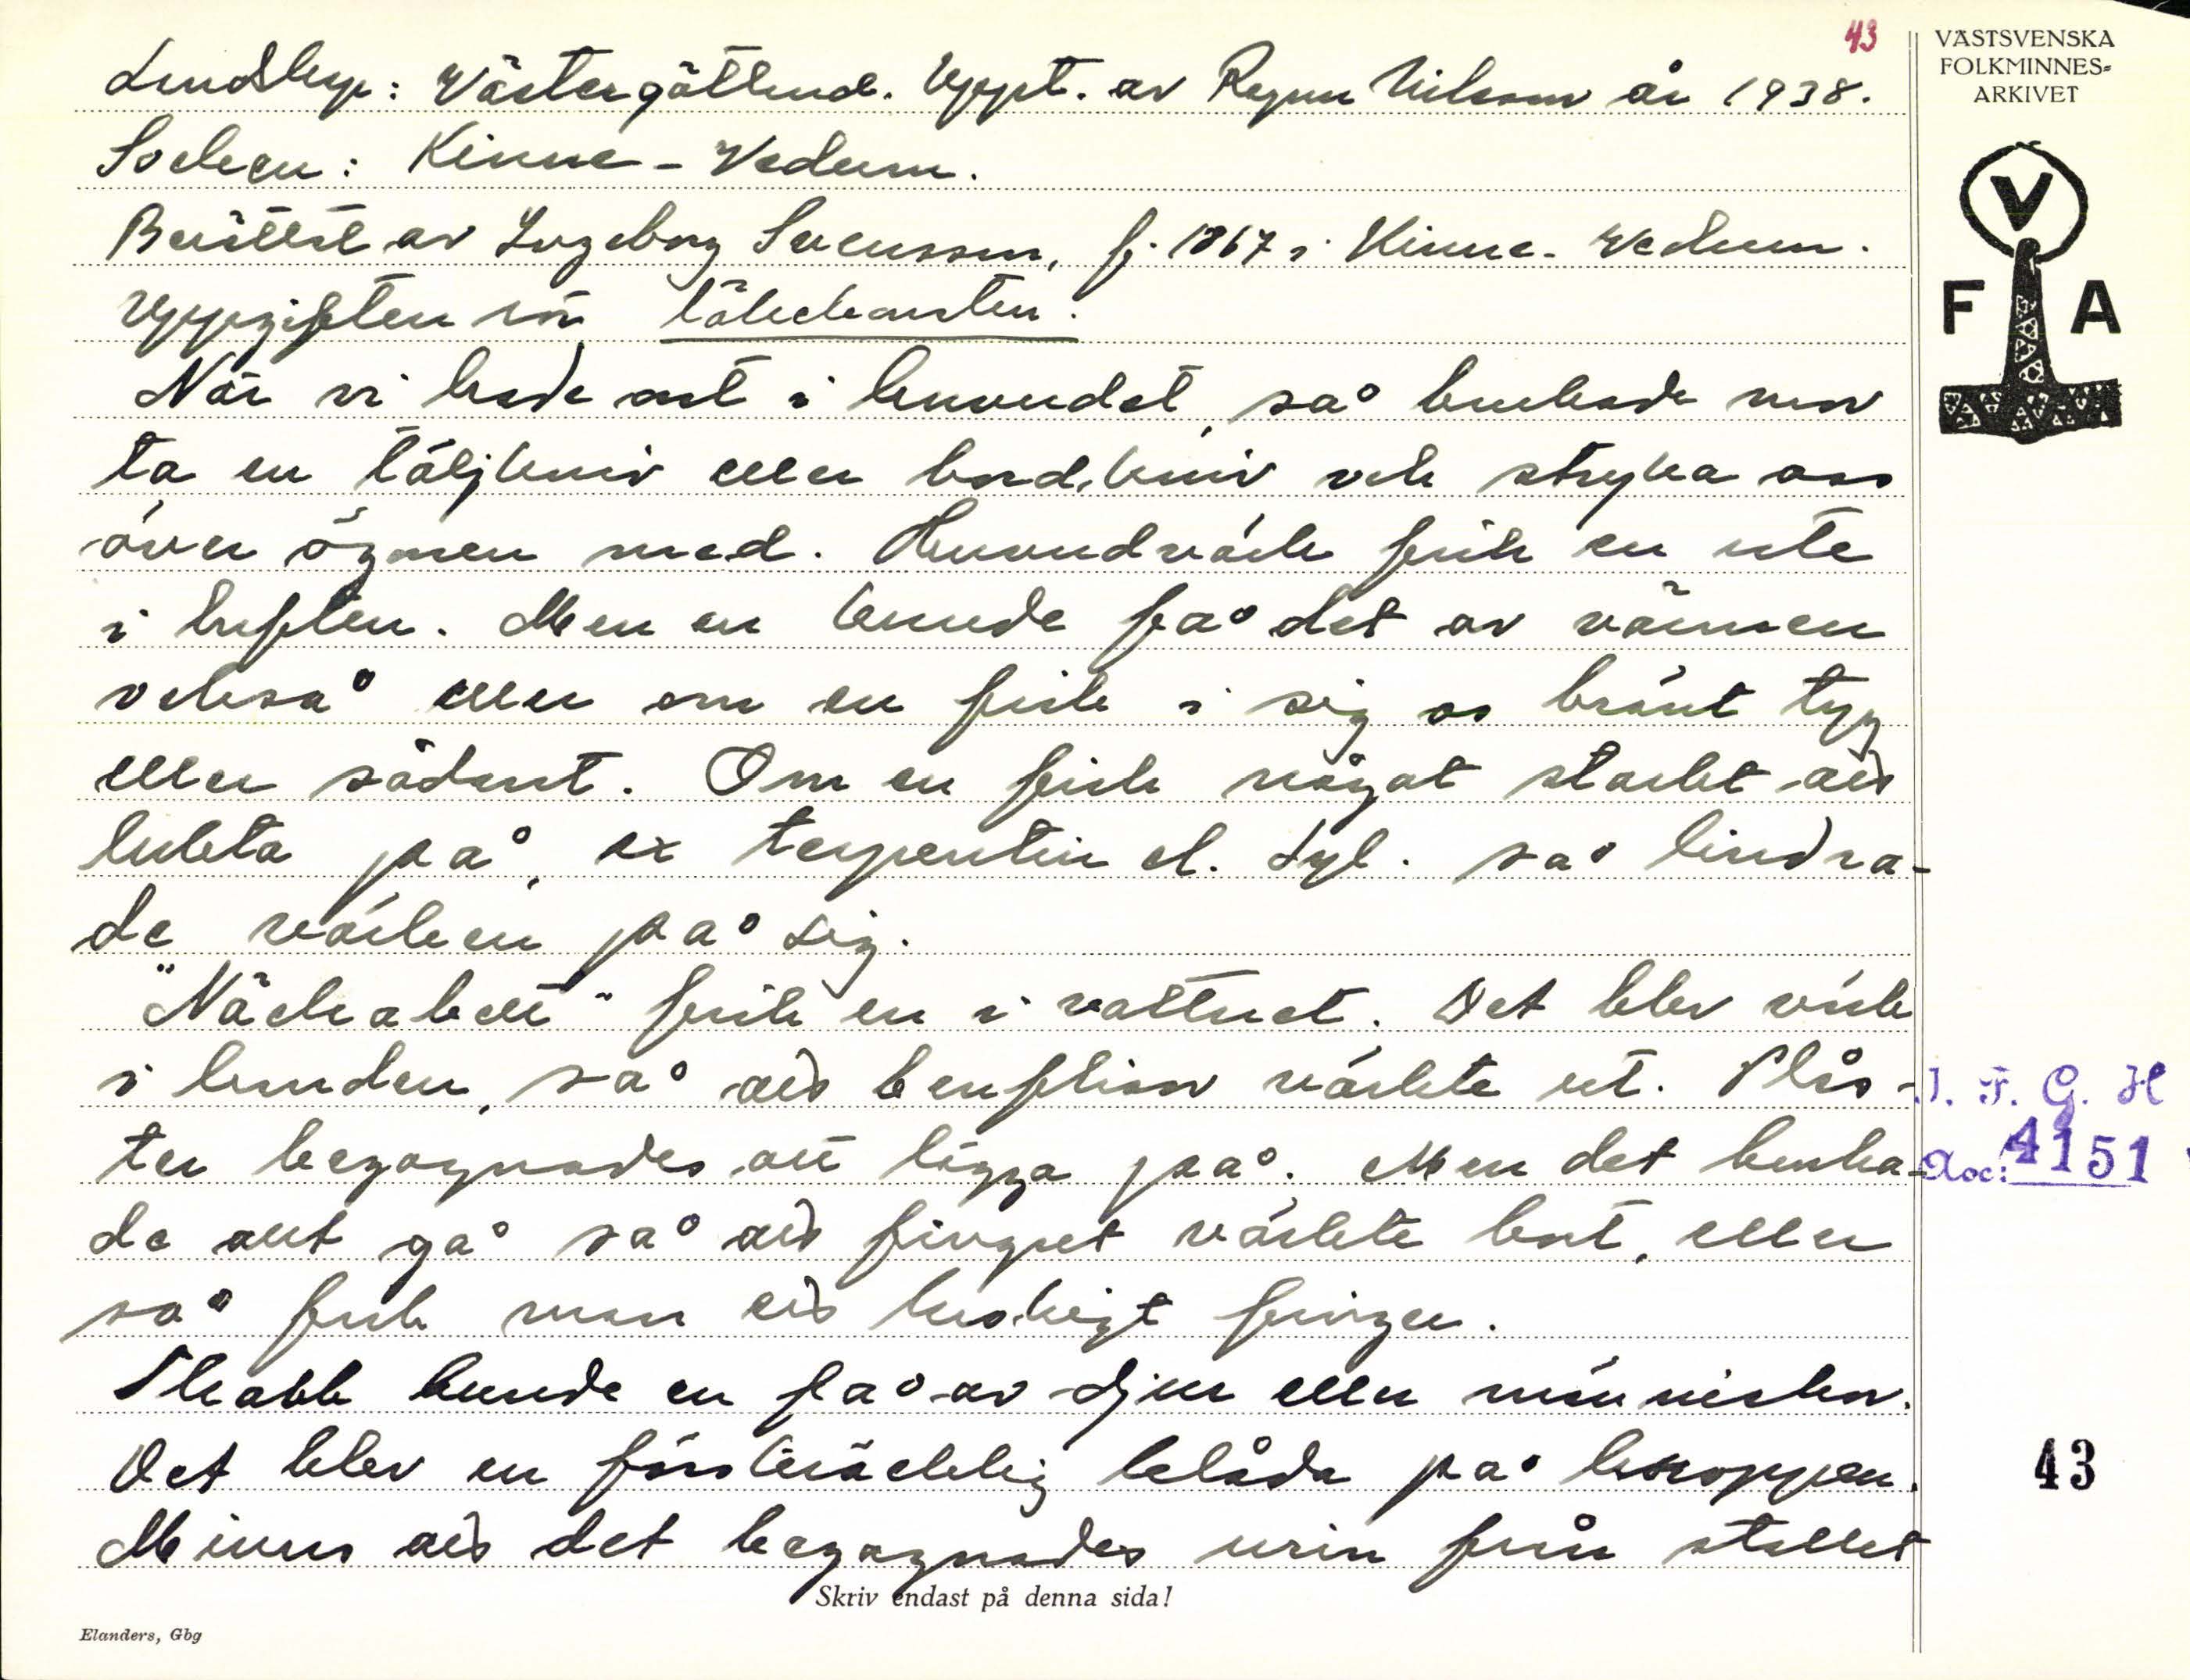 43
Landskap: Västergötland. Uppt. av Ragnar Nilsson år 1938.
Socken: Kinne-Vedum.
Berättat av Ingeborg Svensson, f. 1867 i Kinne-Vedum.
Uppgiften rör läkekonsten.
När vi hade ont i huvudet, så brukade mor
ta en täljkniv eller bordskniv och stryka oss
över ögonen med. Huvudvärk fick en ute
i luften. Men en kunde få det av värmen
också eller om en fick i sig os bränt tyg
eller sådant. Om en fick något starkt att
lukta på, ex terpentin el. dyl. så lindra-
de värken på sig.
"Näckabett" fick en i vattnet. Det blev värk
i handen, så att benflisor värkte ut. Plås-
ter begagnades att lägga på. Men det bruka-
de allt gå så att fingret värkte bort, eller
så fick man ett krokigt finger.
Skabb kunde en få av djur eller människor.
Det blev en förskräcklig klåda på kroppen.
Minns att det begagnades urin från stallet
Skriv endast på denna sida!
Elanders, Gbg
VÄSTSVENSKA
FOLKMINNES-
ARKIVET
V
F A
I. F. G. H
Acc: 4151
43